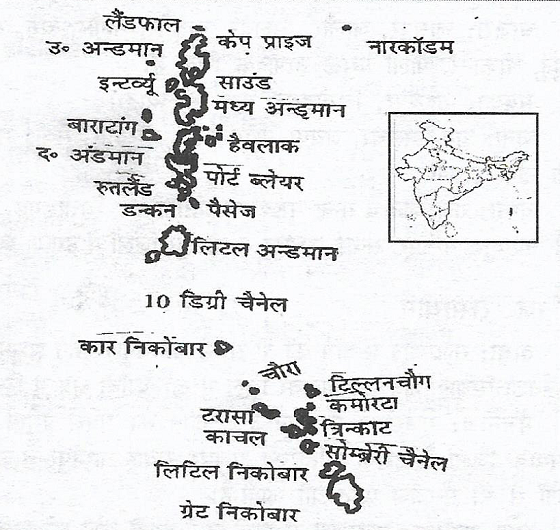 लैंडफाल
उ॰ अन्डमान
केप प्राइज
नारकॉडम
इन्टर्व्यू
साउंड
मध्य अन्ड्मान
बाराटांग
हैवलाक
द॰ अंडमान
पोर्ट ब्लेयर
रुतलैंड
डन्कन पैसेज
लिटल अन्डमान
10 डिग्री चैनेल
कार निकोंबार
चौरा
टिल्लनचौंग
कमोरटा
टरासा
त्रिन्काट
काचल
सोम्ब्रेरी चैनेल
लिटिल निकोबार
ग्रेट निकोबार